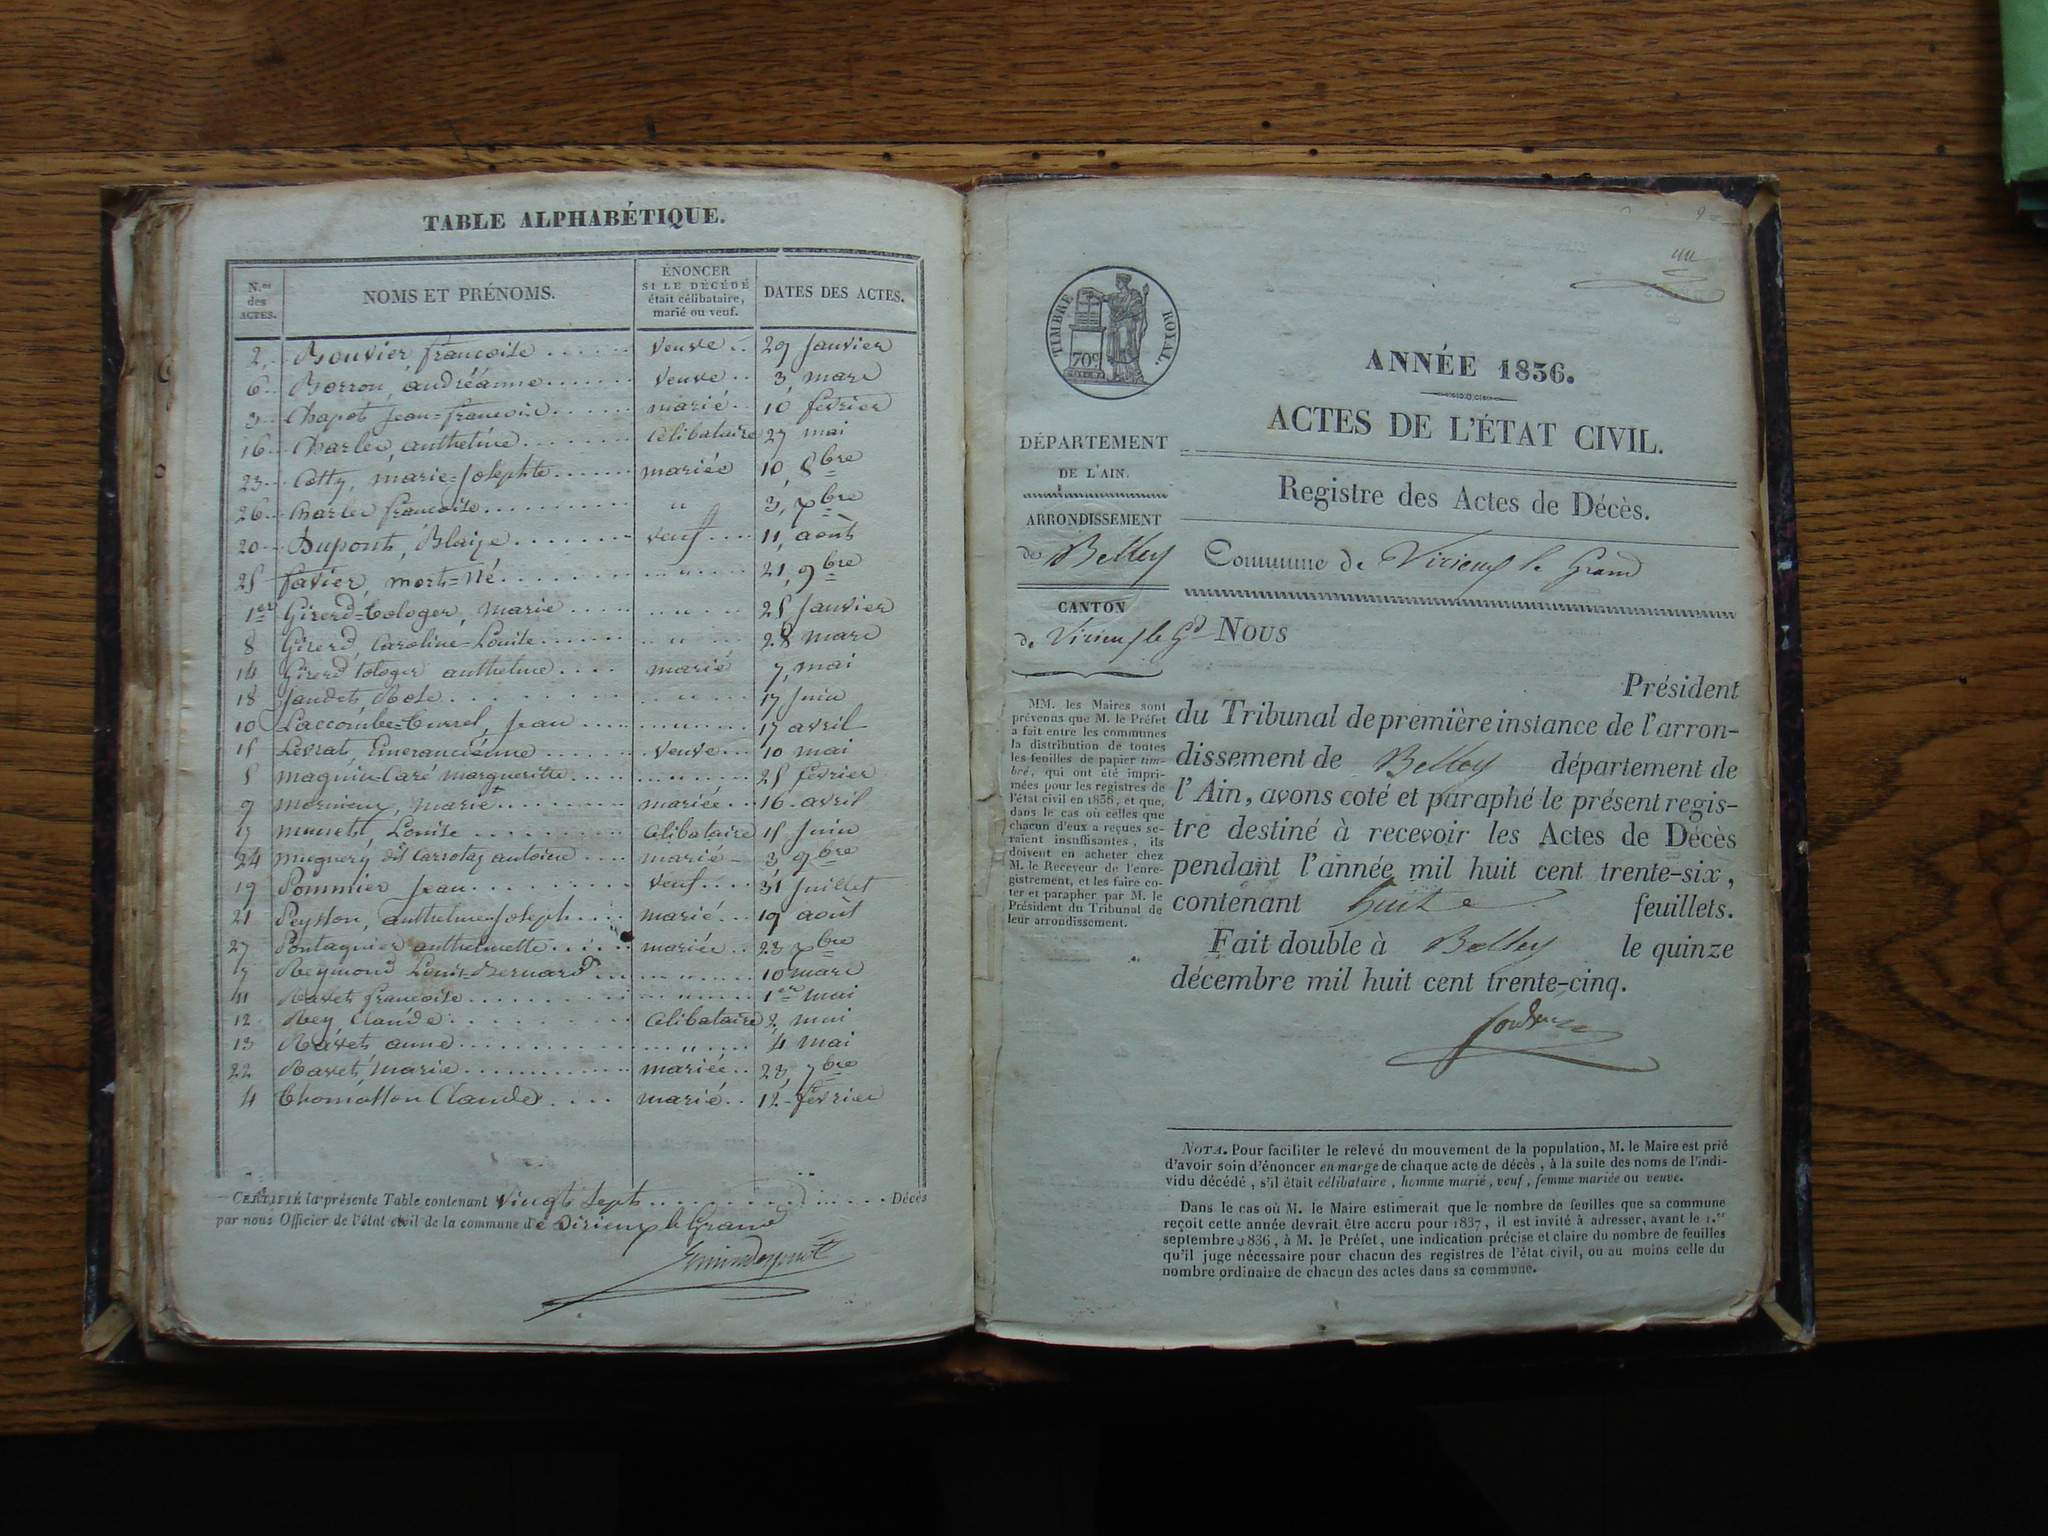 TABLE ALPHABÉTIQUE.
N.os des ACTES.
NOMS ET PRÉNOMS.
ÉNONCER
SI LE DÉCÉDÉ
était célibataire,
marié ou veuf.
DATES DES ACTES.
2 Bouvier françoise veuve 29 Janvier
6 Borron, andréanne veuve 3, mars
3 Chapot Jean-françois marié 10 février
16 Charles, anthelme Célibataire 27 mai
23 Cetty, marie-Josephte mariée 10, 8bre
26 Charles françoise " 3, 9bre
20 Dupont, Blaize veuf 11, août
25 favier, mort-né " 21, 9bre
1er Girerd-tologer, marie " 25 Janvier
8 Girerd, Caroline-Louise " 28 mars
14 Girerd tologer anthelme marié 7, mai
18 Jandet, Rose " 17 Juin
10 Laccombe-turrel, Jean " 17 avril
15 Levrat, Emerancienne veuve 10 mai
5 magnin-Caré margueritte " 25 février
9 mornieux, marie mariée 16 avril
17 munet, Louise Célibataire 15 Juin
24 muguery dit Carrotaz antoine marié 3 9bre
19 Pommier Jean veuf 31 Juillet
21 Peysson, anthelme-Joseph marié 19 août
27 Pontagnier anthelmette mariée 23 xbre
7 Reymond Louis-Bernard " 10 mars
11 Ravet françoise " 1er mai
12 Rey, Claude Célibataire 2, mai
13 Ravet, anne " 4 mai
22 Ravet, marie mariée 23, 7bre
4 Thomasson Claude marié 12 février
CERTIFIÉ la présente Table contenant vingt sept Décès
par nous Officier de l'état civil de la commune de Virieux le Grand
TIMBRE ROYAL.
70c
ANNÉE 1836.
ACTES DE L'ÉTAT CIVIL.
Registre des Actes de Décès.
Commune de Virieux le Grand
DÉPARTEMENT
DE L'AIN.
ARRONDISSEMENT
de Belley
CANTON
de Virieux le Gd
MM. les Maires sont
prévenus que M. le Préfet
a fait entre les communes
la distribution de toutes
les feuilles de papier tim-
bré, qui ont été impri-
mées pour les registres de
l'état civil en 1836, et que,
dans le cas où celles que
chacun d'eux a reçues se-
raient insuffisantes, ils
doivent en acheter chez
M. le Receveur de l'enre-
gistrement, et les faire co-
ter et parapher par M. le
Président du Tribunal de
leur arrondissement.
Nous
Président
du Tribunal de première instance de l'arron-
dissement de Belley département de
l'Ain, avons coté et paraphé le présent regis-
tre destiné à recevoir les Actes de Décès
pendant l'année mil huit cent trente-six,
contenant huit feuillets.
Fait double à Belley le quinze
décembre mil huit cent trente-cinq.
NOTA. Pour faciliter le relevé du mouvement de la population, M. le Maire est prié
d'avoir soin d'énoncer en marge de chaque acte de décès, à la suite des noms de l'indi-
vidu décédé, s'il était célibataire, homme marié, veuf, femme mariée ou veuve.
Dans le cas où M. le Maire estimerait que le nombre de feuilles que sa commune
reçoit cette année devrait être accru pour 1837, il est invité à adresser, avant le 1.er
septembre 1836, à M. le Préfet, une indication précise et claire du nombre de feuilles
qu'il juge nécessaire pour chacun des registres de l'état civil, ou au moins celle du
nombre ordinaire de chacun des actes dans sa commune.